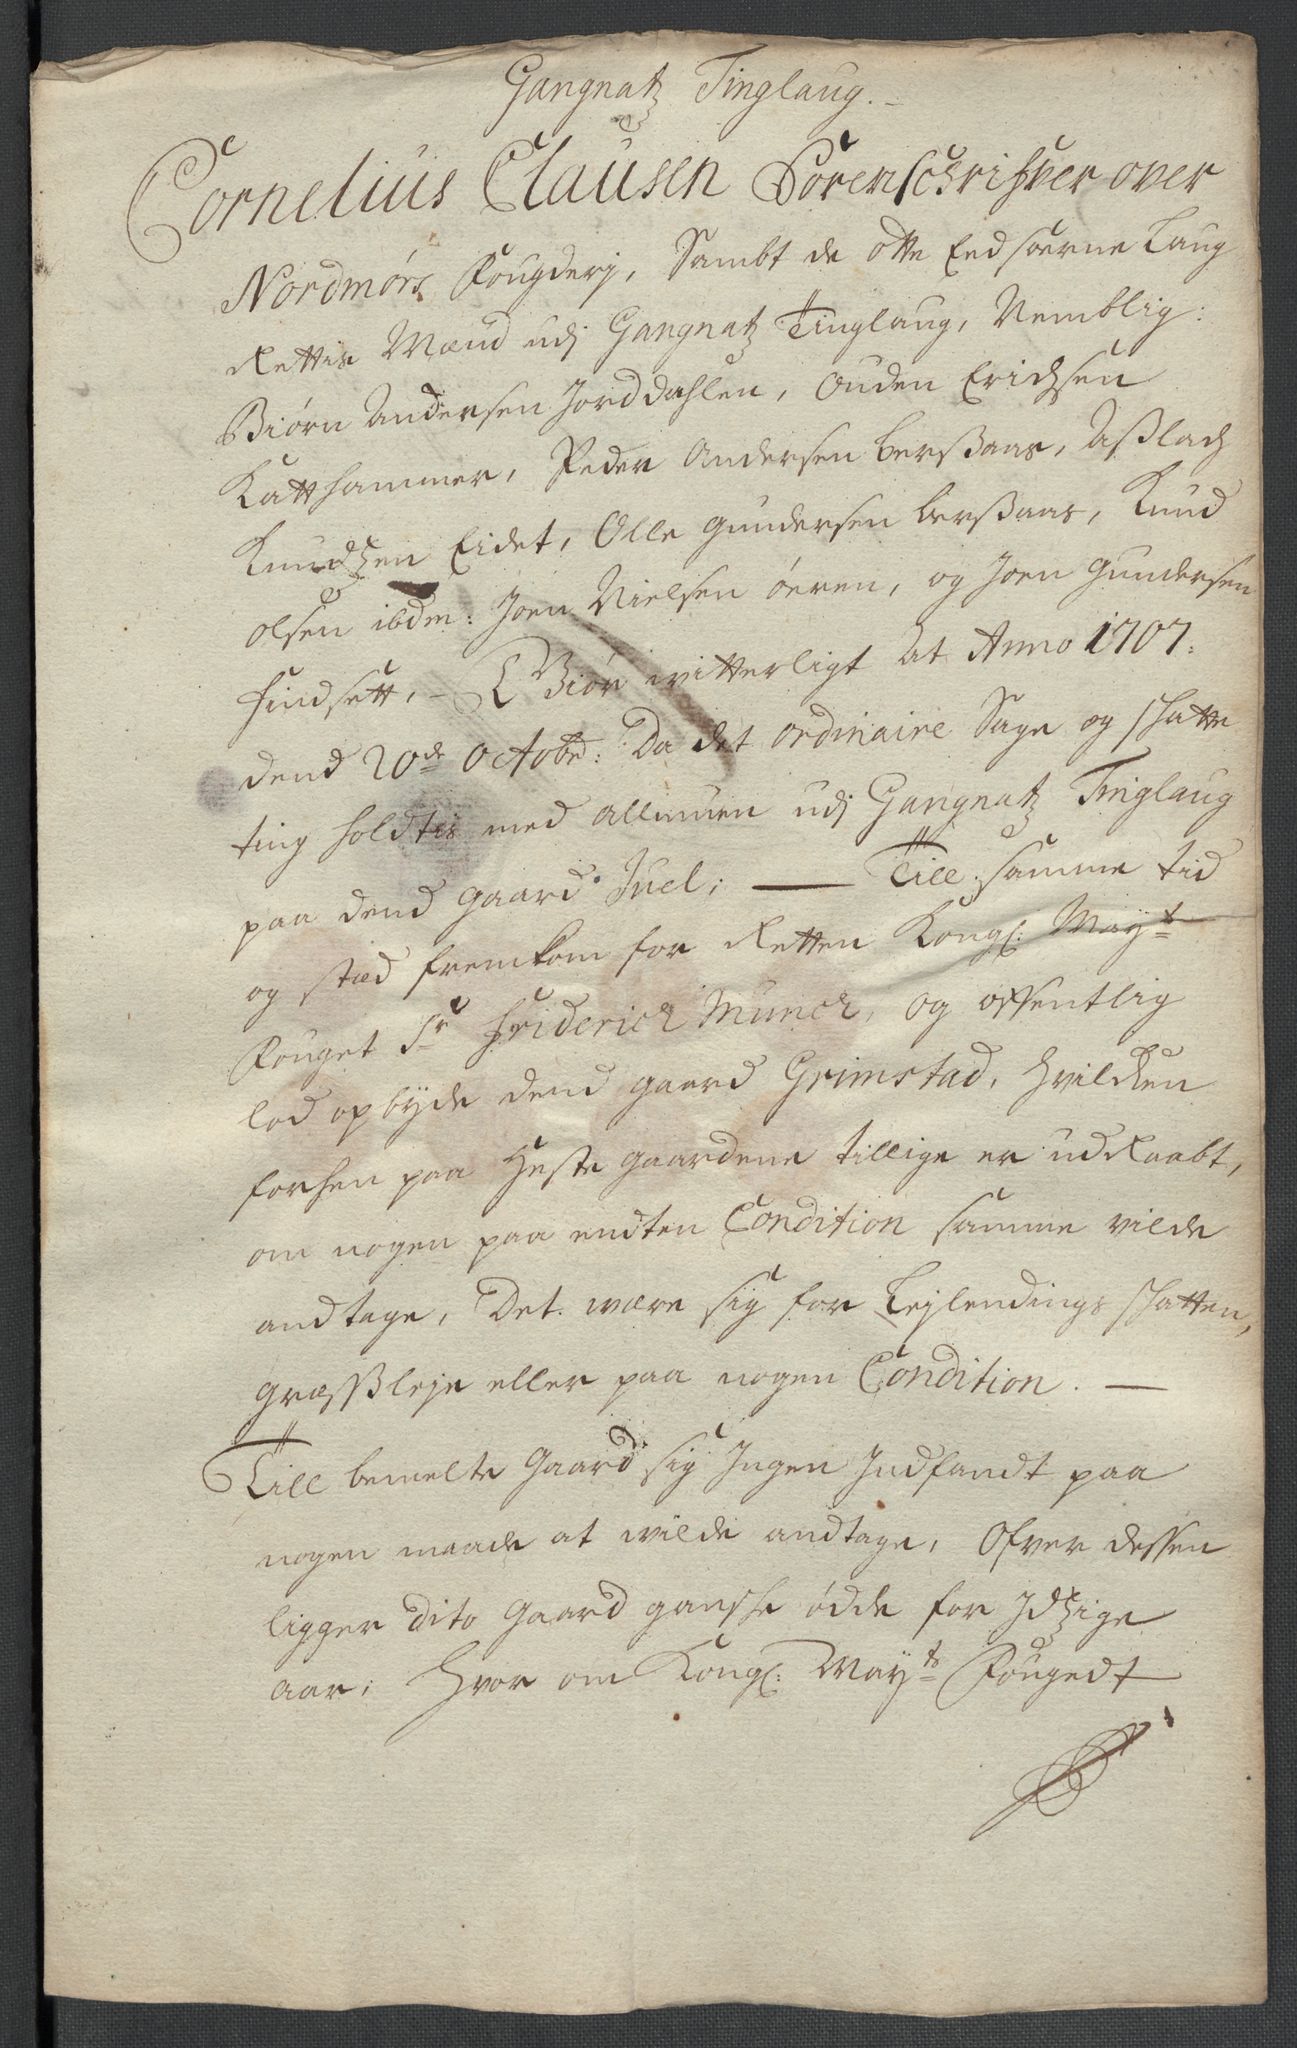 Gangnatz Tinglaug.
Cornelius Clausen Sorenschrifver over
Nordmørs Fougderj, Sambt de otte Eedsoerne Laug
Rettis Mænd udj Gangnatz Tinglaug, Nemblig:
Biørn Andersen Jorddahlen, Ouden Erichsen
Katthammer, Peder Andersen Berßaas, Aßlach
Knudtzen Eidet, Olle Gundersen Berßaas, Knud
olsen ibdm: Joen Nielsen Øeren, og Joen Gundersen
Findsett, - Giør witterligt At Anno 1707:
dend 20de Octobr: Da det ordinaire Sage og schatte
ting holdtes med Allmuen udj Gangnatz Tinglaug
paa dend gaard Juel; — Till samme tid
og stæd fremkom for Retten Kongl: Mayts
Fouget Sr Friderich Munch, og offentlig
lod opbyde dend gaard Grimstad, hvilcken
forhen paa Høste gaardene tillige er udRaabt,
om nogen paa endten Condition samme vilde
andtage, Det være sig for Lejlendings schatten,
græßleje eller paa nogen Condition. —
Till bemelte Gaard sig Ingen Indfandt paa
nogen maade at wilde andtage, Ofver dessen
ligger dito Gaard gansche ødde for Jdtzige
aar; hvor om Kongl: Mayts Fougedt